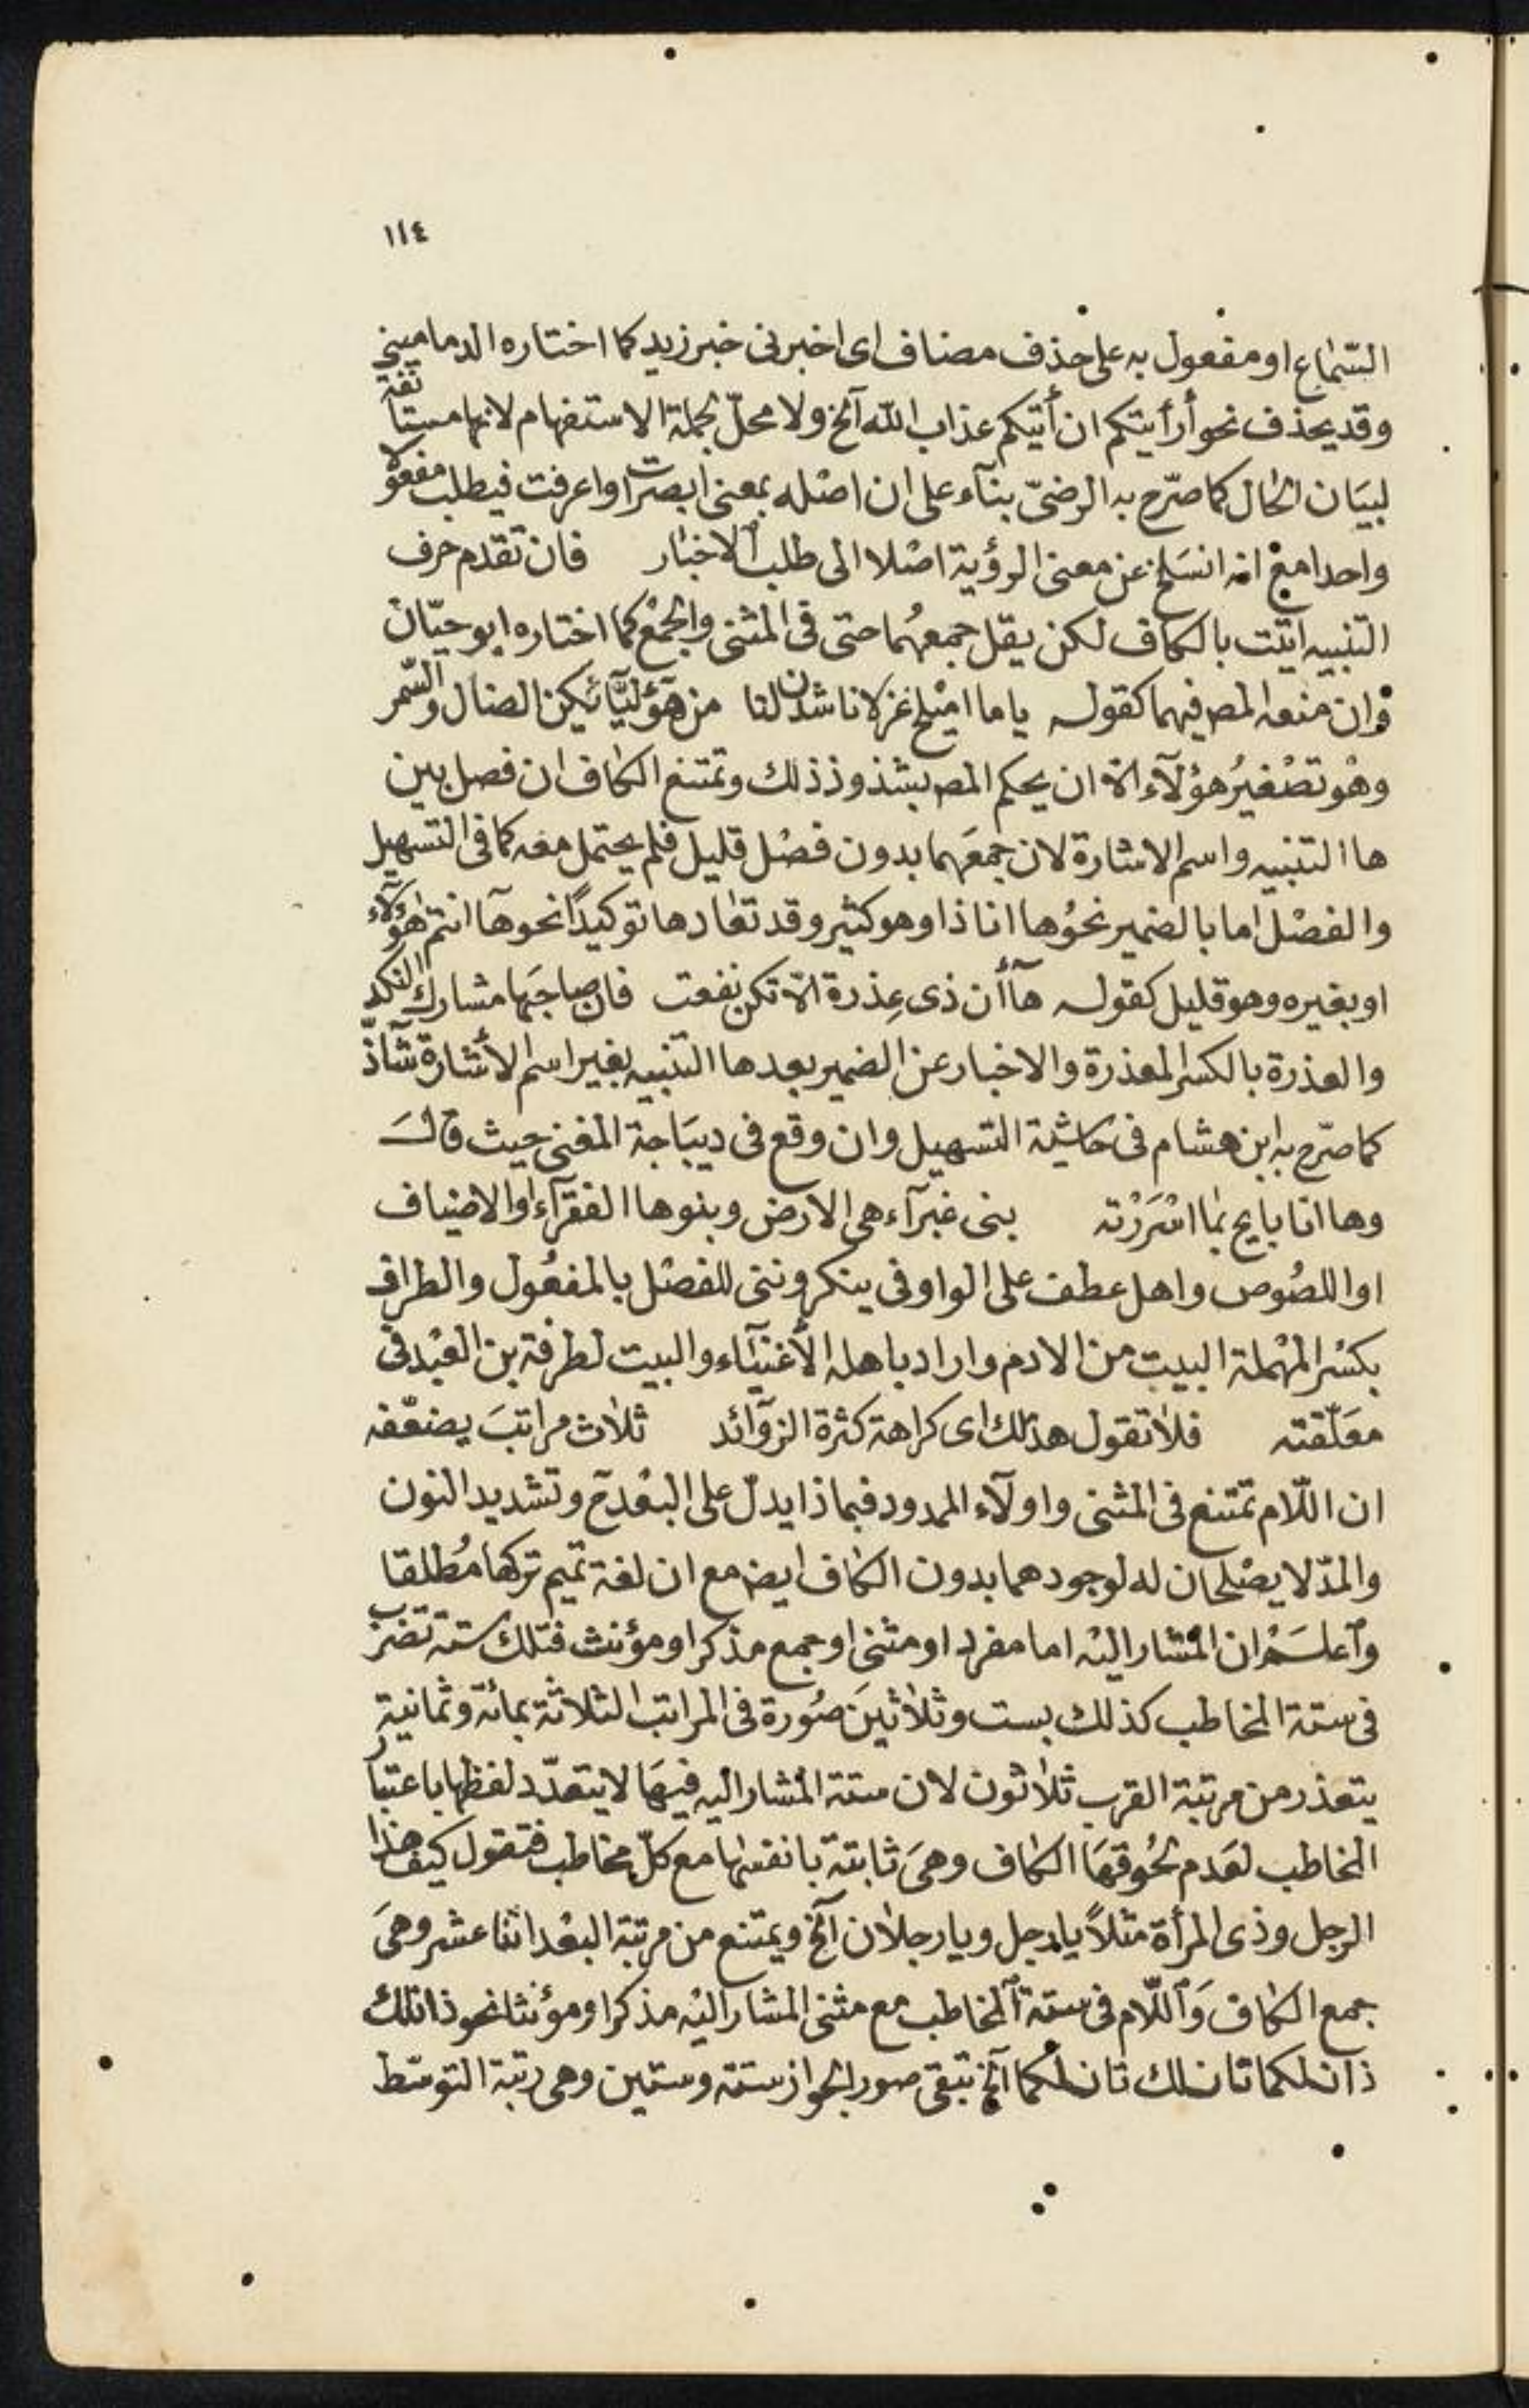 ١١٤
السّماع او مفعول به على حذف مضاف اى اخبرنى خبر زيد كما اختاره الدمامينى
وقد يحذف نحو أرأيتكم ان أتيكم عذاب الله آلخ ولا محلّ لجملة الاستفهام لانها مستأنفة
لبيَان الحال كما صرّح به الرضىّ بنآء على ان اصْله بمعنى ابصرت او اعرفت فيطلب مفعولا
واحدا مع انه انسَلخ عن معنى الرؤية اصْلا الى طلب الاخبار فان تقدم حرف
التنبيه اتيْت بالكاف لكن يقل جمعهُما حتى فى المثنى والجمْع كما اختاره ابو حيّان
وان منعه المصر فيهما كقوله ياما امْيلح غزلانا شدن لنا من هؤليّآئكن الضال والسّمر
وهْو تصْغيرُ هؤلآء الّا ان يحكم المصر بشذوذ ذلك وتمتنع الكاف ان فصل بين
ها التنبيه واسم الاشارة لان جمعَهما بدون فصْل قليل فلم يحتمل معه كما فى التسهيل
والفصْل اما بالضمير نحوُ ها انا ذا وهو كثير وقد تعاد ها توكيدًا نحو هآ انتم هؤلآء
او بغيره وهو قليل كقوله هآ أن ذى عِذرة الّا تكن نفعت فان صاحبَها مشارك النكد
والعذرة بالكسر المعذرة والاخبار عن الضمير بعد ها التنبيه بغير اسم الأشارة شآذّ
كما صرّح به ابن هشام فى حاشية التسهيل وان وقع فى ديبَاجة المغنى حيث قالَ
وها انا بايح بما اسْرَرْته بنى غبرآء هى الارض وبنوها الفقرآء او الاضياف
او اللصُوص واهل عطف على الواو فى ينكروننى للفصْل بالمفعُول والطراف
بكسْر المهْملة البيت من الادم واراد باهله الأغنيَاء والبيت لطرفة بن العبْد فى
معَلّقته فلا تقول هذلك اى كراهة كثرة الزوآئد ثلاث مراتبَ يضعّفه
ان اللّام تمتنع فى المثنى واولآء الممدود فبماذا يدلّ على البعْدح وتشديد النون
والمدّ لا يصْلحان له لوجودهما بدون الكاف ايضر مع ان لغة تميم تركها مُطلقا
وآعلَمْ ان المشار اليْه اما مفرد او مثنى او جمع مذكر او مؤنث فتلك ستة تضرب
فى ستة المخاطب كذلك بست وثلاثينَ صُورة فى المراتب الثلاثة بمائة وثمانية
يتعذر من مرتبة القرب ثلاثون لان ستة المشار اليه فيهَا لا يتعدّد لفظها باعتبار
المخاطب لعَدم لحُوقهَا الكاف وهىَ ثابتة بانفسها مع كلّ مخاطب فتقول كيف هذا
الرجل وذى المرأة مثلاً يا رجل ويا رجلان آلخ ويمتنع من مرتبة البعْد اثنا عشر وهىَ
جمع الكاف وَاللّام فى ستة المخاطب مع مثنى المشار اليْه مذكرا ومؤنثا نحو ذانلك
ذانلكما تانلك تانلكما آلخ تبقى صور الجواز ستة وستين وهى رتبة التوسّط